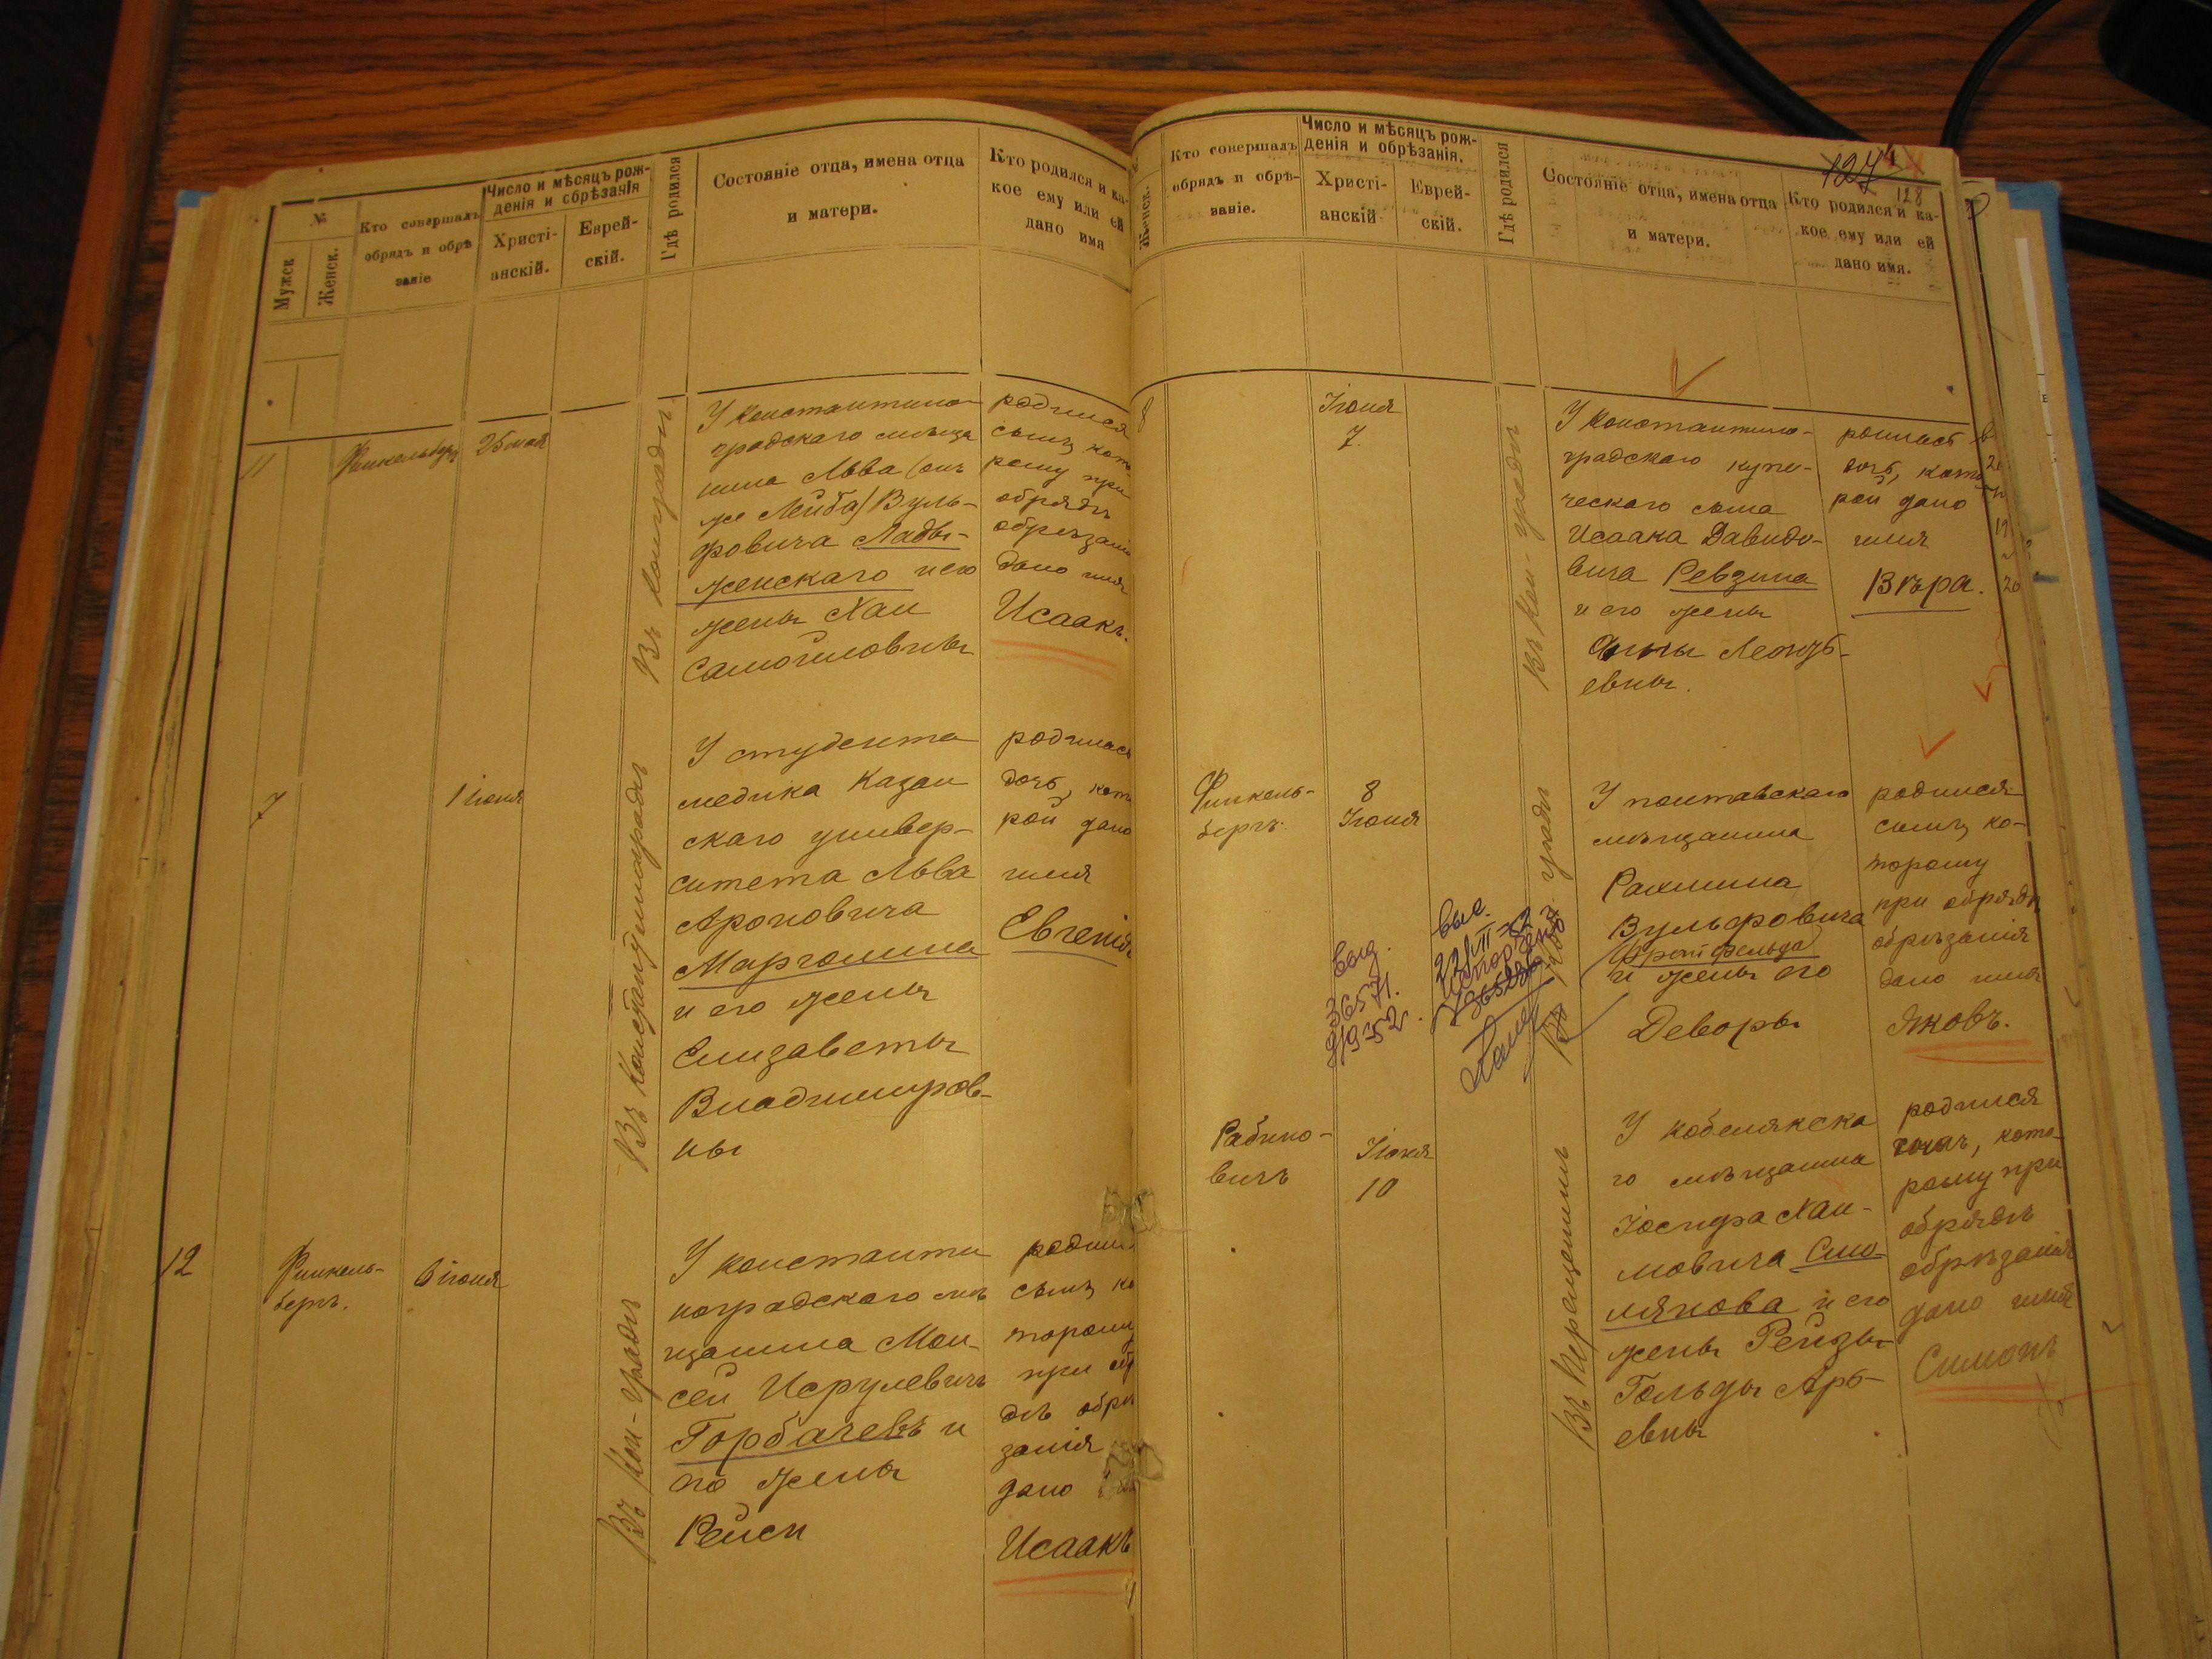 №
Мужск
Женск.
Кто совершалъ
обрядъ и обрѣ
заніе
Число и мѣсяцъ рож-
денія и обрѣзанія
Христі-
анскій.
Еврей-
скій.
Гдѣ родился
Состояніе отца, имена отца
и матери.
Кто родился и ка-
кое ему или ей
дано имя
11
Финкельбергъ
25 мая
У Константино-
градскаго мѣща
нина Льва (онъ
же Лейба) Вуль-
фовича Лады-
женскаго и его
жены Хаи
Самойловны
родился
сынъ, кото
рому при
обрядѣ
обрѣзанія
дано имя
Исаакъ.
7
1 іюня
Въ Константиноградѣ
У студента
медика Казан
скаго универ-
ситета Льва
Ароновича
Марголина
и его жены
Елизаветы
Владиміров-
ны
родилась
дочь, кото
рой дано
имя
Евгенія
12
Финкель-
бергъ.
6 іюня
Въ Кон-градѣ
У константи
ноградскаго мѣ
щанина Мои-
сей Исрулевичъ
Горбачевъ и
его жены
Рейси
родил
сынъ, ко
торому
при об
дѣ обрѣ
занія
дано
Исаакъ
Женск.
Кто совершалъ
обрядъ и обрѣ-
заніе.
Число и мѣсяцъ рож-
денія и обрѣзанія.
Христі-
анскій
Еврей-
скій.
Гдѣ родился
Состояніе отца, имена отца
и матери.
Кто родился и ка-
кое ему или ей
дано имя.
128
8
Іюня
7.
Въ Кон-градѣ
У Константино-
градскаго купе-
ческаго сына
Исаака Давидо-
вича Ревзина
и его жены
Анны Леонть-
евны.
родилась
дочь, кото
рой дано
имя
Вѣра.
Финкель-
бергъ.
8
Іюня
У полтавскаго
мѣщанина
Рахмина
Вульфовича
Кронфельда
и жены его
Деворы
родился
сынъ, ко-
торому
при обрядѣ
обрѣзанія
дано имя
Яковъ.
Рабино-
вичъ
Іюня
10
У кобелякска
го мѣщанина
Іосифа Хаи-
мовича Смо
лякова и его
жены Рейзы-
Гольды Арь-
евны
родился
сынъ, кото-
рому при
обрядѣ
обрѣзанія
дано имя
Симонъ